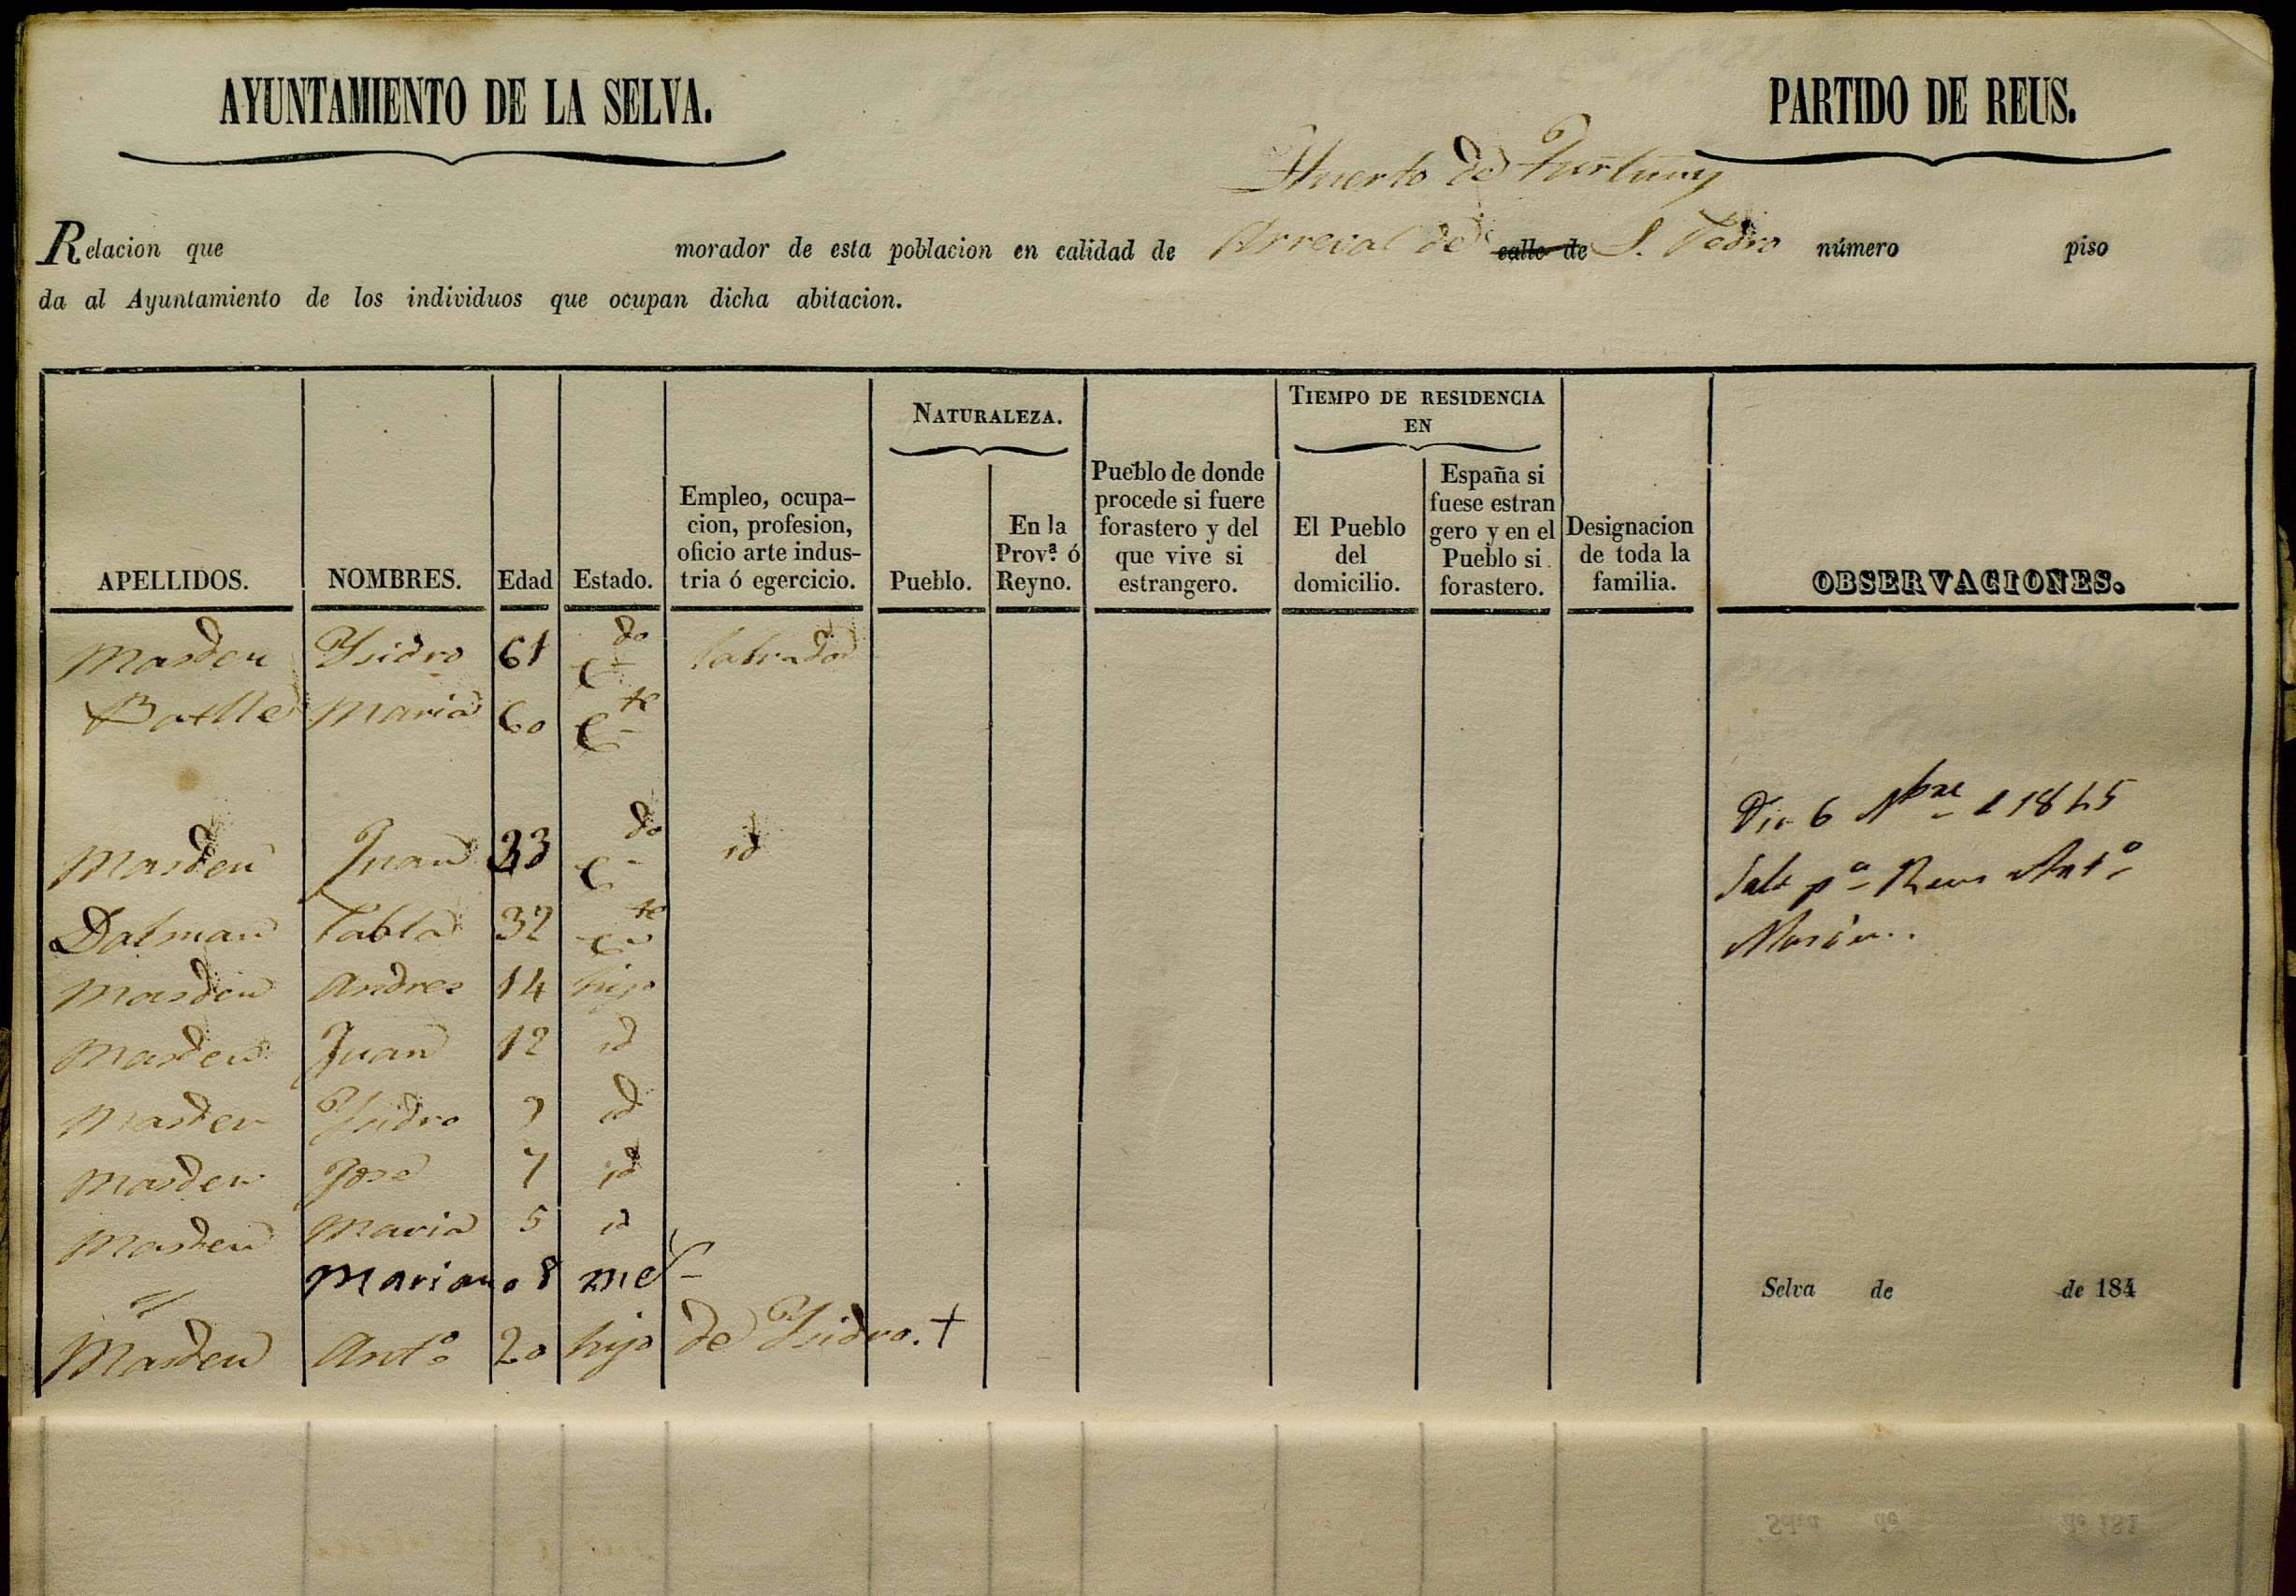 AYUNTAMIENTO DE LA SELVA.
PARTIDO DE REUS.
Huerto de Furtuny
Relacion que morador de esta poblacion en calidad de Arreval de calle de S. Pedro número piso
da al Ayuntamiento de los individuos que ocupan dicha abitacion.
NATURALEZA.
TIEMPO DE RESIDENCIA EN
APELLIDOS.
NOMBRES.
Edad
Estado.
Empleo, ocupa-
cion, profesion,
oficio arte indus-
tria ó egercicio.
Pueblo.
En la
Prov.ª ó
Reyno.
Pueblo de donde
procede si fuere
forastero y del
que vive si
estrangero.
El Pueblo
del
domicilio.
España si
fuese estran
gero y en el
Pueblo si
forastero.
Designacion
de toda la
familia.
OBSERVACIONES.
Masdeu Ysidro 61 C.do labrador
Batlle Maria 60 C.te
Masdeu Juan 33 C.do id
Dalmau Pabla 32 C.te
Masdeu Andres 14 hijo
Masdeu Juan 12 id
Masdeu Ysidro 9 id
Masdeu José 7 id
Masdeu Maria 5 id
" Mariano 8 mes
Masdeu Ant.o 20 hijo de Ysidro. +
Dia 6 Nbre 1845
Sale p.a Reus Ant.o
Selva de de 184